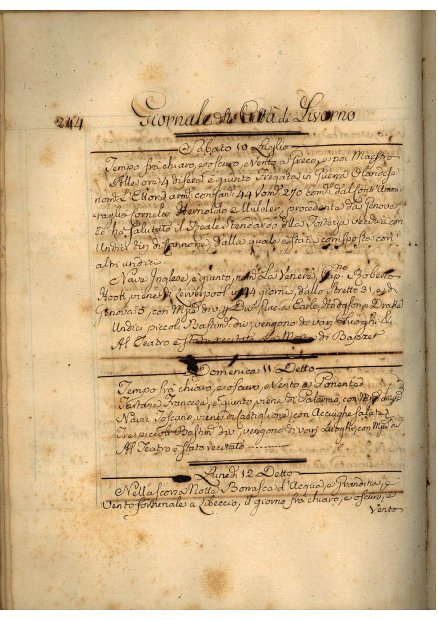 244 Giornale della Città di Livorno
Sabato 10 Luglio
Tempo fra chiaro, e oscuro, Vento a Greco, e poi Maestro
Alle ore 4 di sera è giunto Fregata in Guerra Olandese
nom. L' con Cann. 44 Uom. 270 Com. dal Conte Ammi-
raglio Cornelio Reinoldo procedente da Genova
Ed ha salutato il Reale Stendardo della Fortezza Vecchia con
Undici tiri di Cannone, dalla quale è stata corrisposta con
altri undici.
Nave Inglese, è giunto, nom. La Venere, Cap. Roberto
viene di Liverpool in 44 giorni, dallo Stretto 21, e di
Genova 3, con di div. a Earle, Hodgson, e Drake
Undici piccoli Bastim. div. vengono da vari Luoghi &c.
Al Teatro è stata recitata di
Domenica 11 Detto
Tempo fra chiaro, e oscuro, Vento a Ponente
Tartana Francese, è giunto, viene di Palermo, con
Navi. Toscano, viene di Castiglione, con Acciughe salate
Tre piccoli Bastim. div. vengono di vari Luoghi, con
Al Teatro è stato recitato
Lunedì 12 Detto
Nella scorsa Notte Borrasca d'Acqua, e Grandina, e
Vento fortunale a Libeccio, il giorno fra chiaro, e oscuro, e
Vento